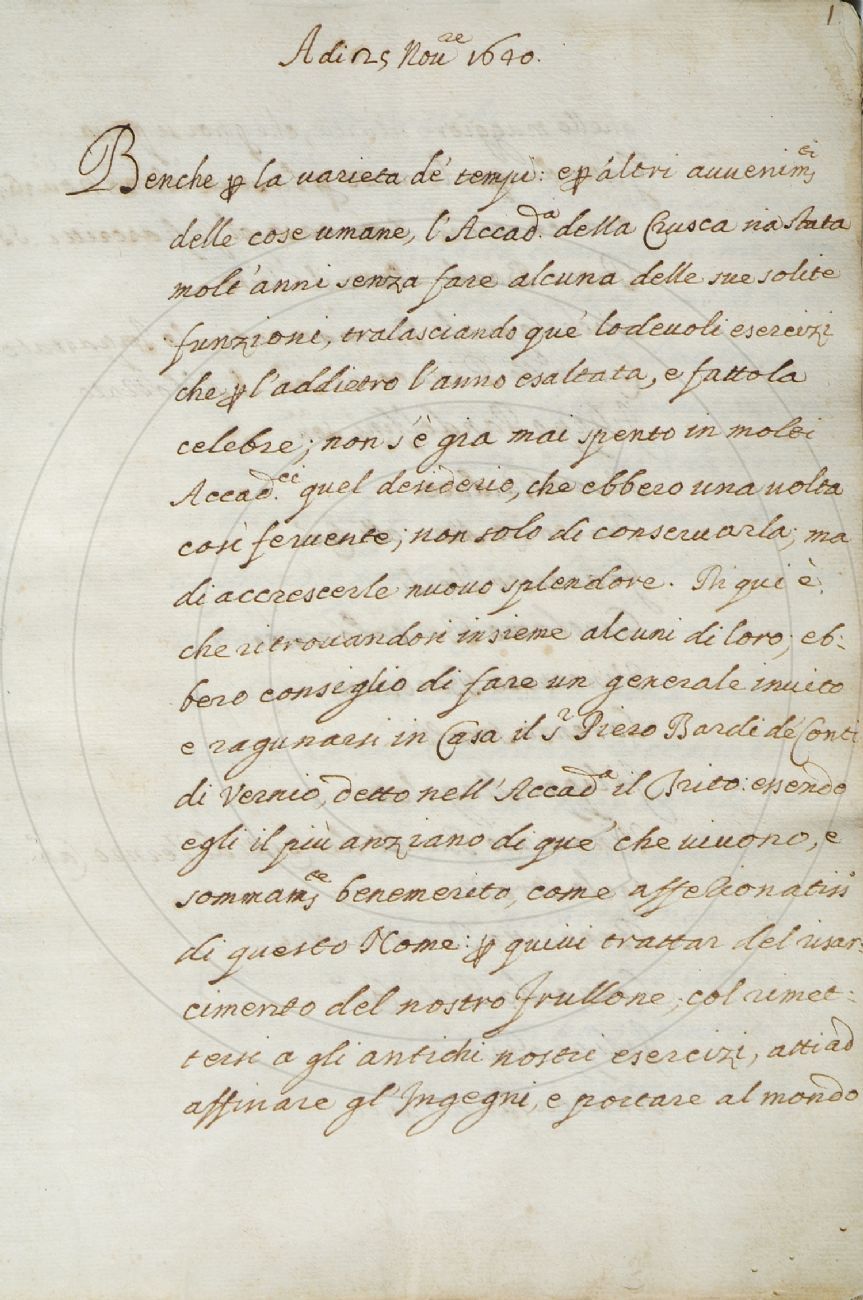 1
Adi 25 Nou.re 1640.
Benche p la varieta de' tempi: e p altri auuenim.ti
delle cose umane, l'Accad.a della Crusca sia stata
molt'anni senza fare alcuna delle sue solite
funzioni, tralasciando que' lodeuoli esercizi
che p l'addietro l'anno esaltata, e fattola
celebre; non s'è gia mai spento in molti
Accad.ci quel desiderio, che ebbero una uolta
così feruente; non solo di conseruarla; ma
di accrescerle nuouo splendore. Di qui è,
che ritrouandosi insieme alcuni di loro; eb:
bero consiglio di fare un generale inuito
e ragunarsi in Casa il S.r Piero Bardi de' Conti
di Vernio, detto nell'Accad.a il Trito: essendo
egli il più anziano di que' che uiuono, e
sommam.te benemerito, come affezionatiss
di questo Nome: p quiui trattar del risar:
cimento del nostro Frullone; col rimet:
tersi a gli antichi nostri esercizi, atti ad
affinare gl'Ingegni, e portare al mondo